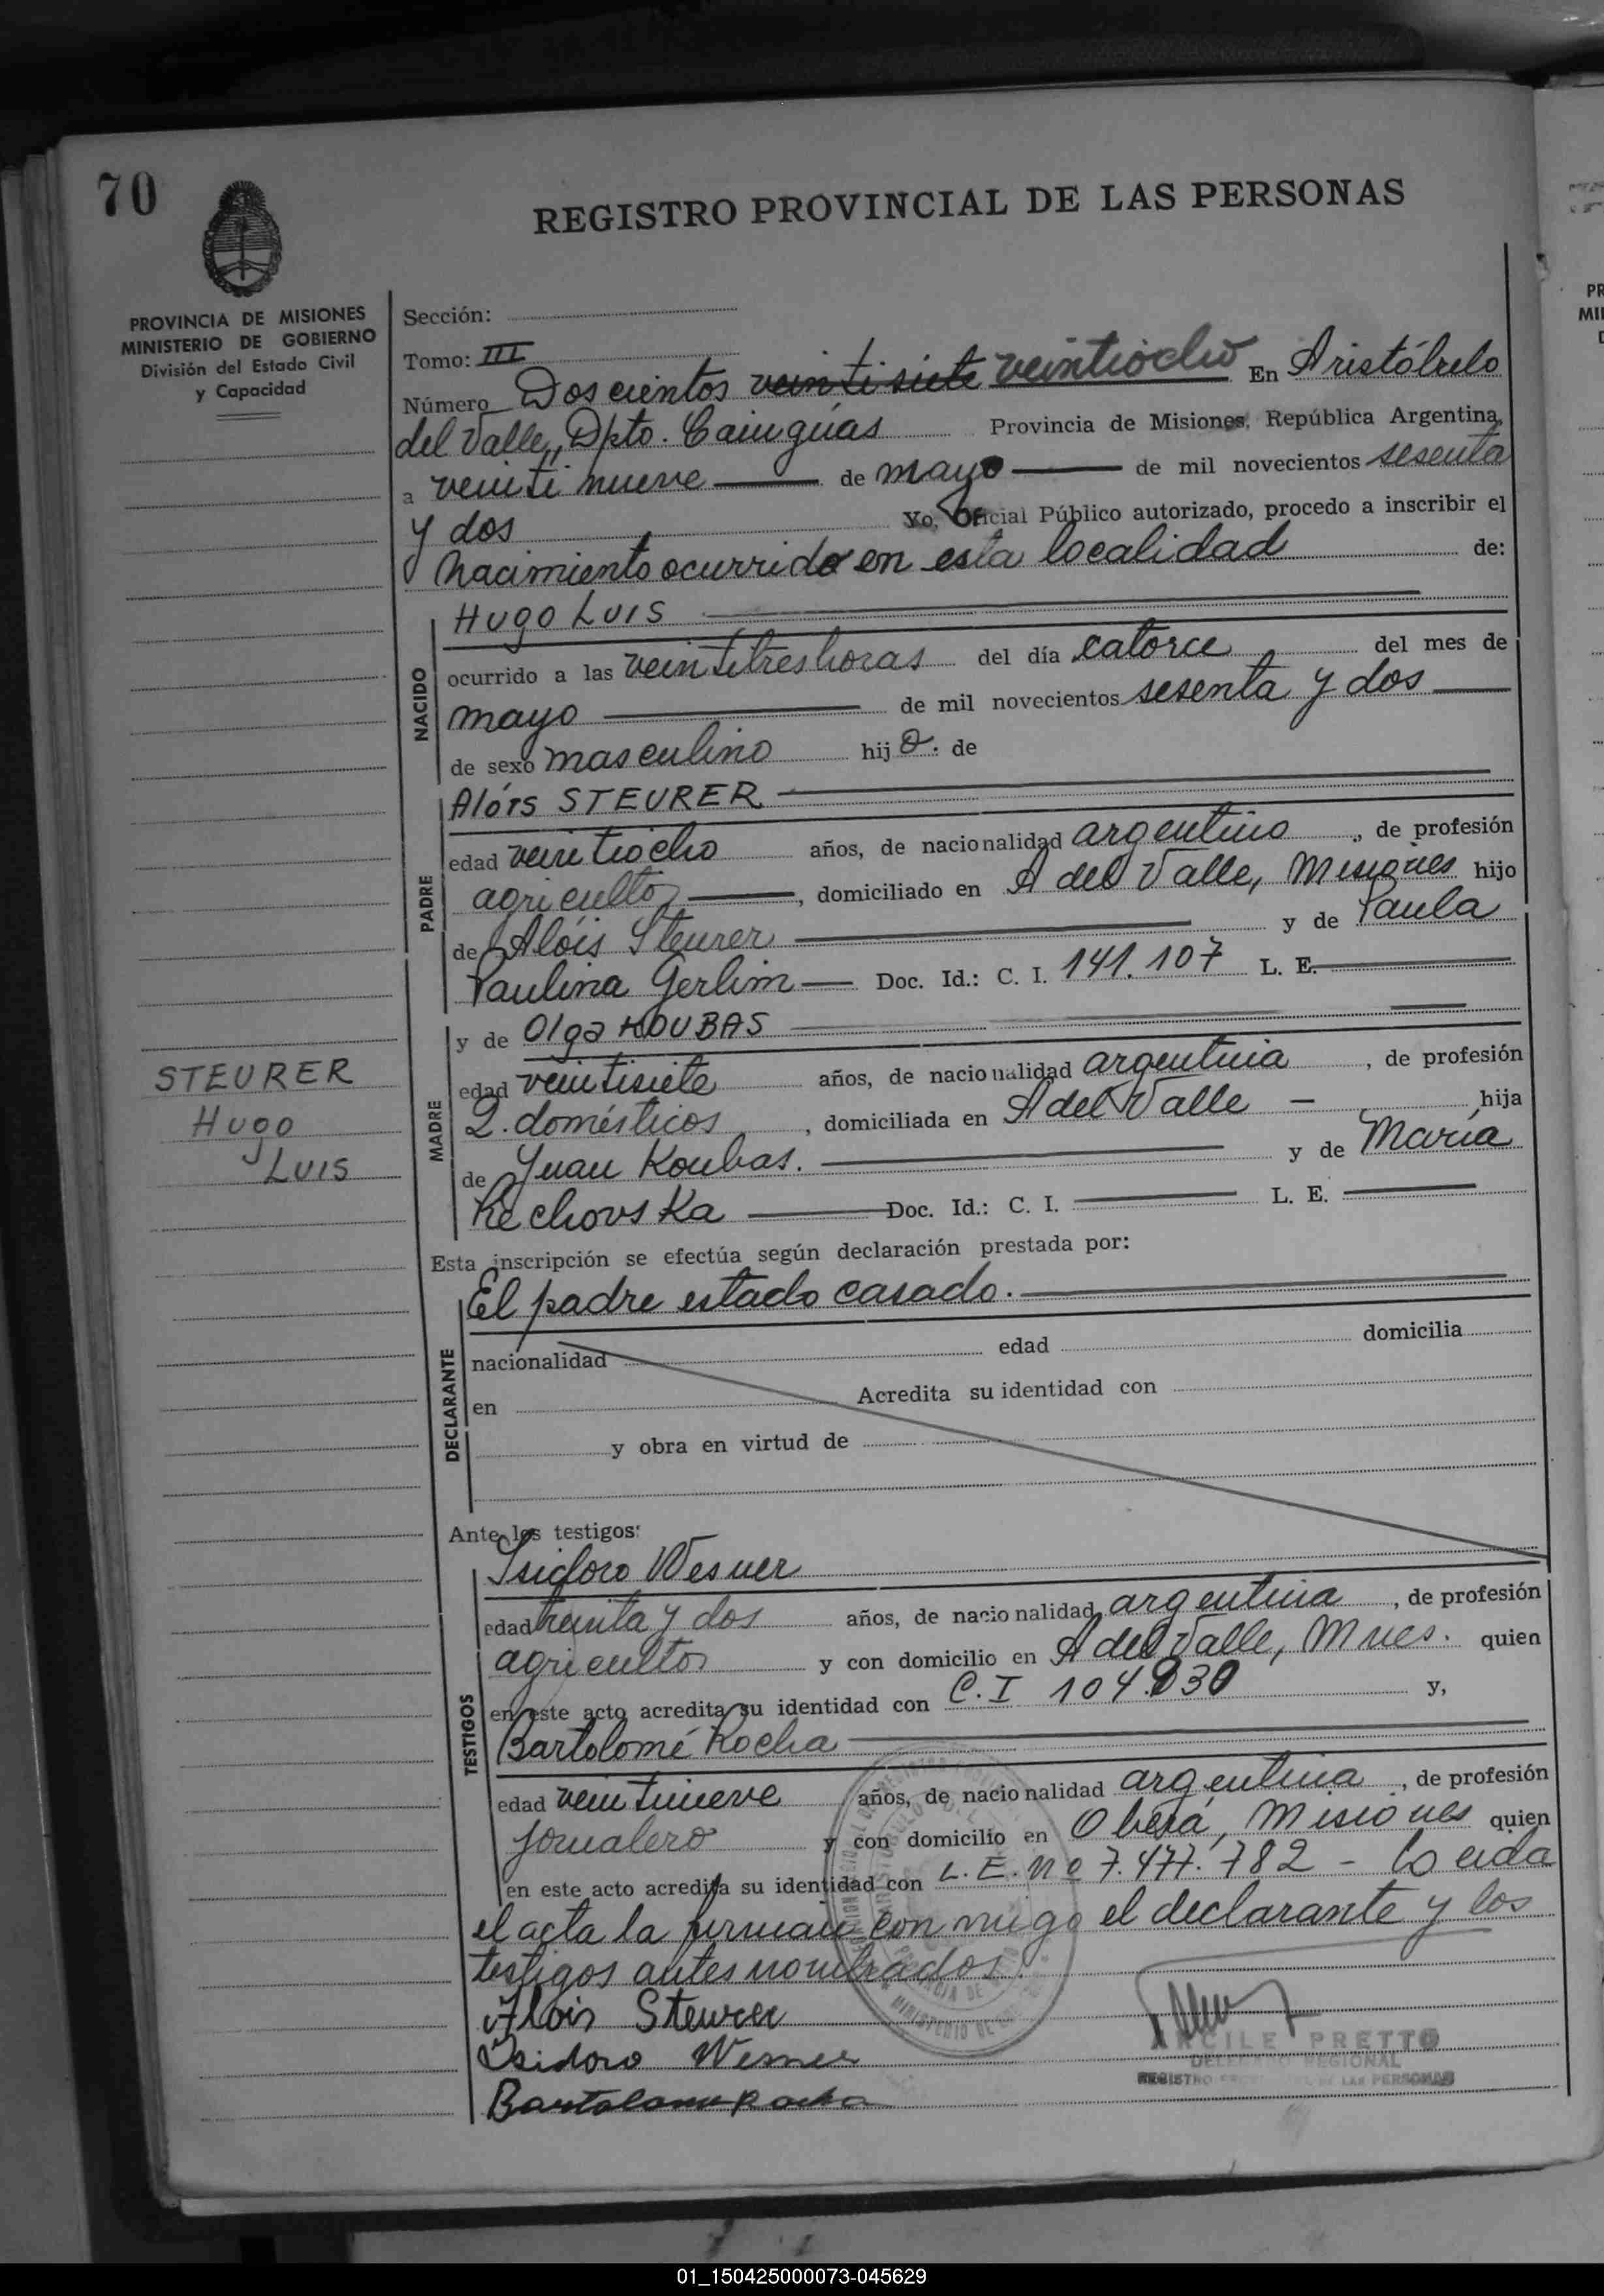 70
REGISTRO PROVINCIAL DE LAS PERSONAS
PROVINCIA DE MISIONES
MINISTERIO DE GOBIERNO
División del Estado Civil
y Capacidad
Sección:
Tomo: III
Número Doscientos veintisiete veintiocho En Aristóbulo
del Valle, Dpto. Cainguás Provincia de Misiones, República Argentina,
a veinti nueve de mayo de mil novecientos sesenta
y dos Yo, Oficial Público autorizado, procedo a inscribir el
nacimiento ocurrido en esta localidad de:
NACIDO
Hugo LUIS
ocurrido a las veintitres horas del día catorce del mes de
mayo de mil novecientos sesenta y dos
de sexo masculino hijo. de
PADRE
Alóis STEURER
edad veintiocho años, de nacionalidad argentino, de profesión
agricultor, domiciliado en A del Valle, Misiones hijo
de Alóis Steurer y de Paula
Paulina Gerlim Doc. Id.: C. I. 141.107 L. E.
MADRE
y de Olga KOUBAS
edad veintisiete años, de nacionalidad argentina, de profesión
Q. domésticos, domiciliada en A del Valle - hija
de Juan Koubas. y de María
Rechovska Doc. Id.: C. I. L. E.
STEURER
Hugo
LUIS
Esta inscripción se efectúa según declaración prestada por:
DECLARANTE
El padre estado casado.
nacionalidad edad domicilia
en Acredita su identidad con
y obra en virtud de
Ante los testigos:
TESTIGOS
Isidoro Wesner
edad treinta y dos años, de nacionalidad argentina, de profesión
agricultor y con domicilio en A del Valle, Mnes. quien
en este acto acredita su identidad con C. I 104. y,
Bartolomé Rocha
edad veintinueve años, de nacionalidad argentina, de profesión
jornalero y con domicilio en Oberá, Misiones quien
en este acto acredita su identidad con L. E. nº 7.477.782 - Leida
el acta la firman con migo el declarante y los
testigos antes nombrados.
Alois Steurer
Isidoro Wesner
Bartolome Rocha
ARCILE PRETTO
DELEGADO REGIONAL
REGISTRO DE LAS PERSONAS
01_150425000073-045629